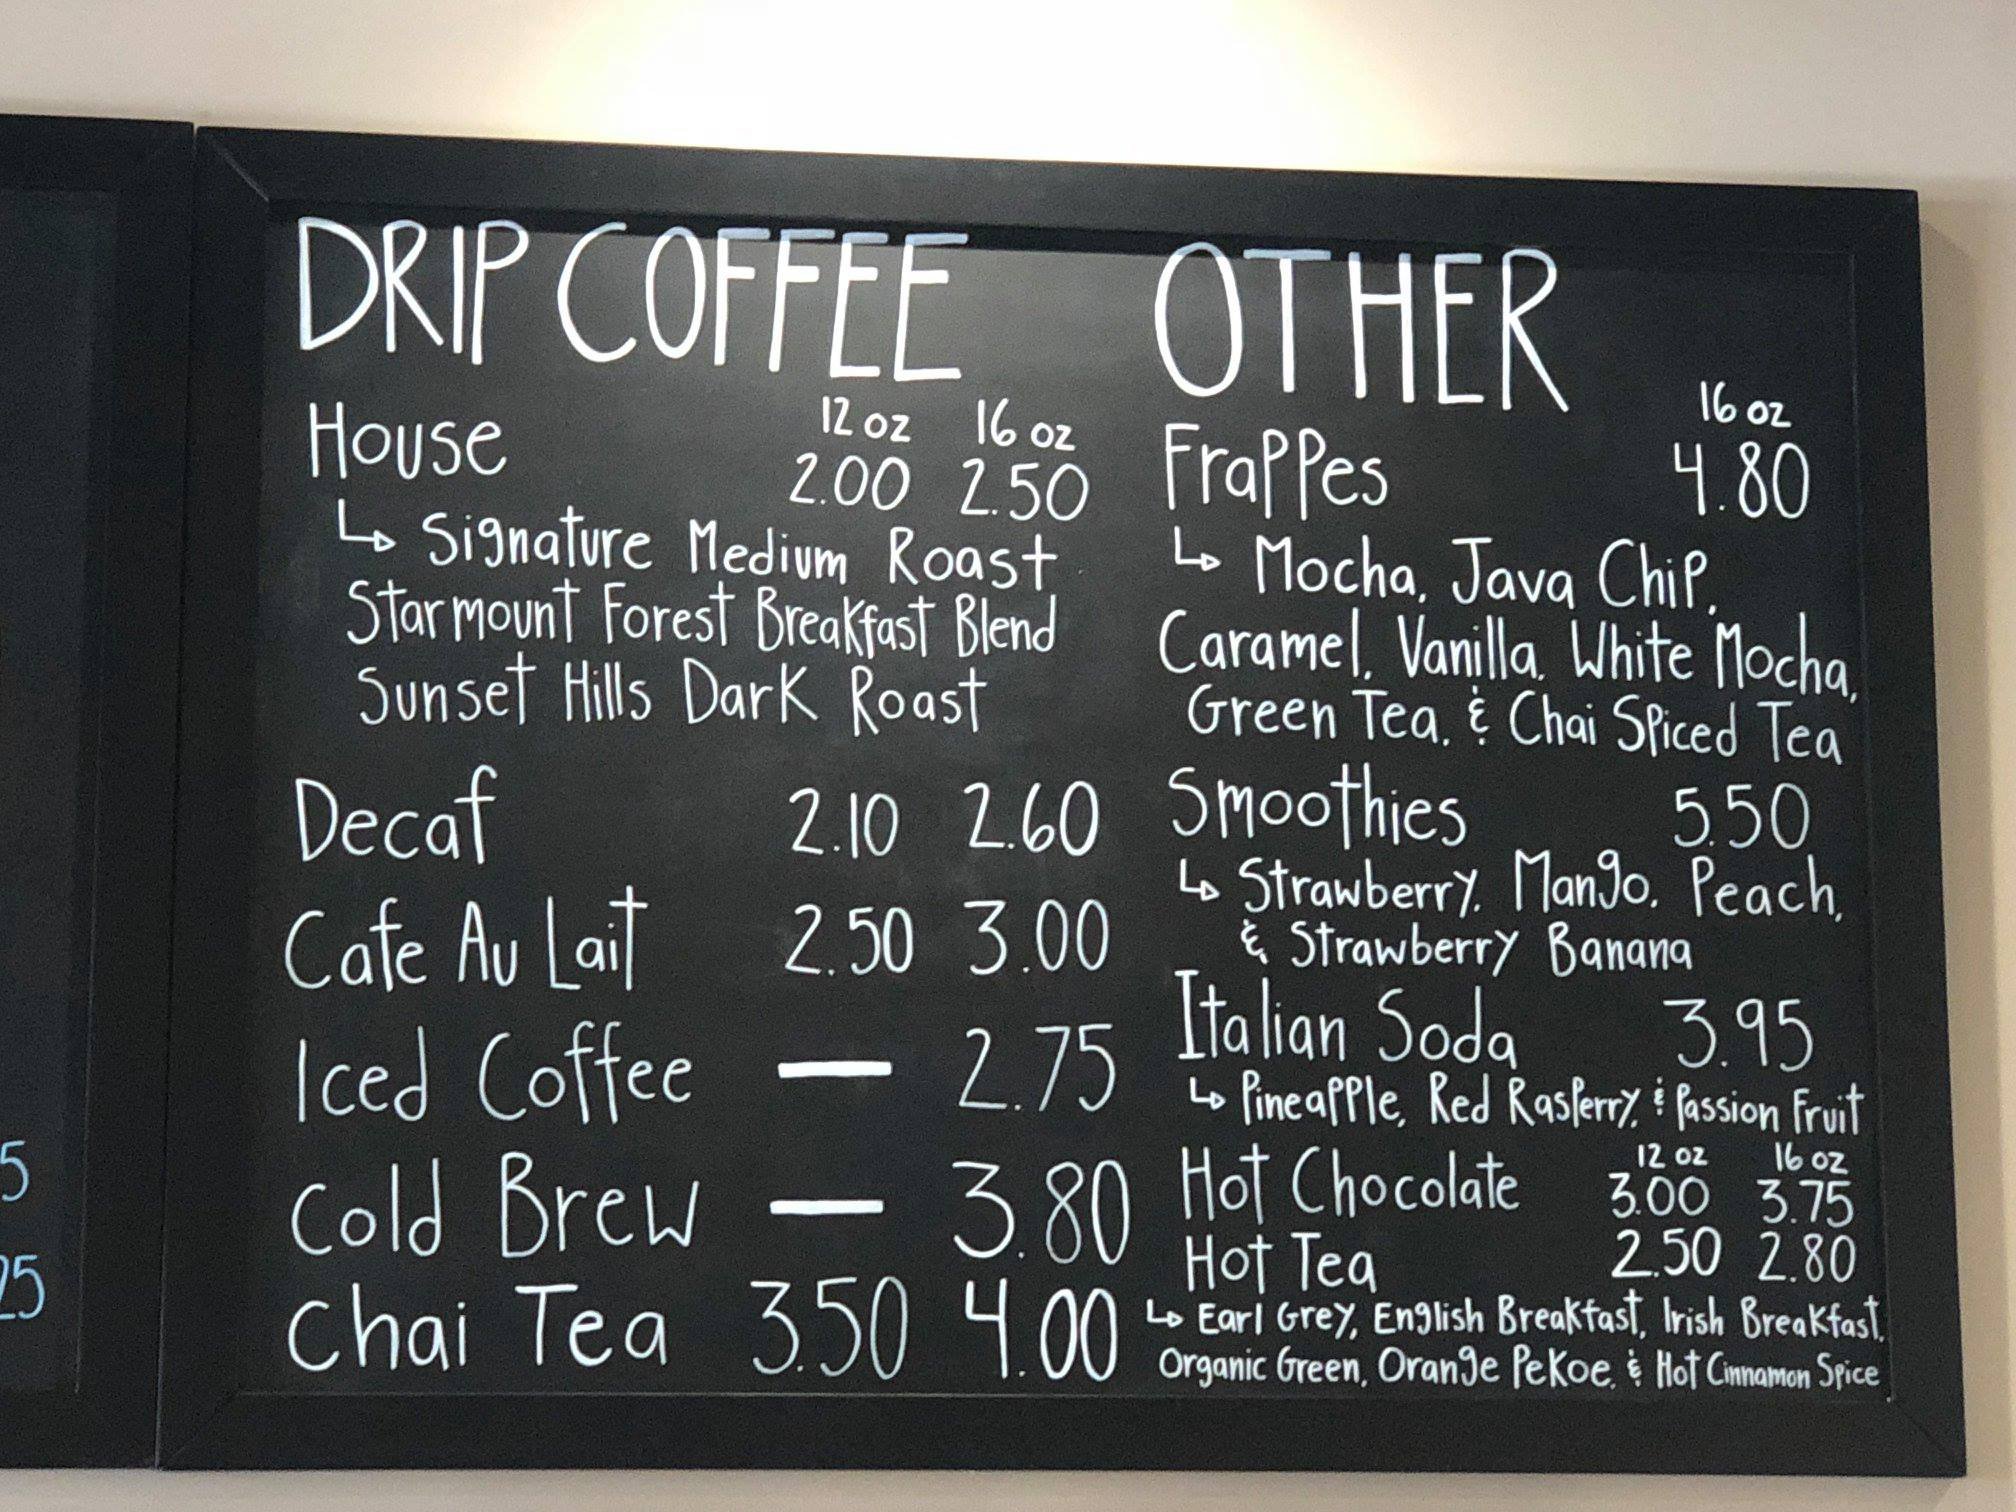 DRIP COFFEE
12 oz 16 oz
House 2.00 2.50
↳ Signature Medium Roast
Starmount Forest Breakfast Blend
Sunset Hills Dark Roast
Decaf 2.10 2.60
Cafe Au Lait 2.50 3.00
Iced Coffee — 2.75
Cold Brew — 3.80
Chai Tea 3.50 4.00
OTHER
16 oz
Frappes 4.80
↳ Mocha, Java Chip,
Caramel, Vanilla, White Mocha,
Green Tea, & Chai Spiced Tea
Smoothies 5.50
↳ Strawberry, Mango, Peach,
& Strawberry Banana
Italian Soda 3.95
↳ Pineapple, Red Rasperry, & Passion Fruit
12 oz 16 oz
Hot Chocolate 3.00 3.75
Hot Tea 2.50 2.80
↳ Earl Grey, English Breakfast, Irish Breakfast,
Organic Green, Orange Pekoe, & Hot Cinnamon Spice
5
25